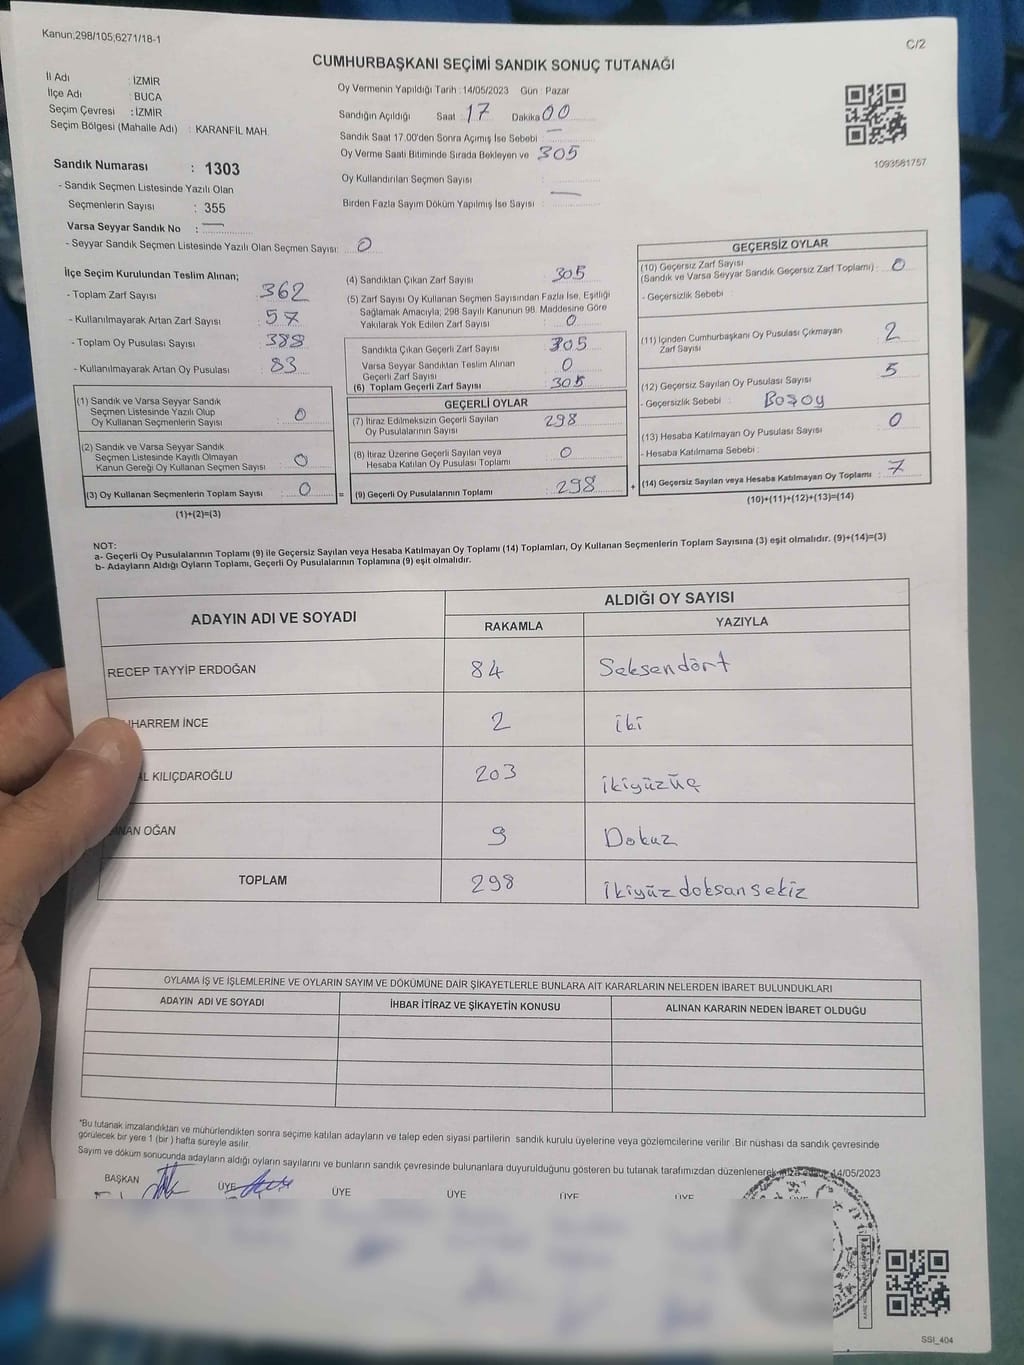 Kanun;298/105;6271/18-1
C/2
CUMHURBAŞKANI SEÇİMİ SANDIK SONUÇ TUTANAĞI
İl Adı : İZMİR
İlçe Adı : BUCA
Seçim Çevresi : İZMİR
Seçim Bölgesi (Mahalle Adı) : KARANFİL MAH.
Sandık Numarası : 1303
- Sandık Seçmen Listesinde Yazılı Olan
Seçmenlerin Sayısı : 355
Varsa Seyyar Sandık No : —
- Seyyar Sandık Seçmen Listesinde Yazılı Olan Seçmen Sayısı: 0
Oy Vermenin Yapıldığı Tarih : 14/05/2023 Gün : Pazar
Sandığın Açıldığı Saat : 17 Dakika 00
Sandık Saat 17.00'den Sonra Açımış İse Sebebi : —
Oy Verme Saati Bitiminde Sırada Bekleyen ve 305
Oy Kullandırılan Seçmen Sayısı :
Birden Fazla Sayım Döküm Yapılmış İse Sayısı : —
1093581757
İlçe Seçim Kurulundan Teslim Alınan;
- Toplam Zarf Sayısı : 362
- Kullanılmayarak Artan Zarf Sayısı : 57
- Toplam Oy Pusulası Sayısı : 388
- Kullanılmayarak Artan Oy Pusulası : 83
(1) Sandık ve Varsa Seyyar Sandık
Seçmen Listesinde Yazılı Olup
Oy Kullanan Seçmenlerin Sayısı : 0
(2) Sandık ve Varsa Seyyar Sandık
Seçmen Listesinde Kayıtlı Olmayan
Kanun Gereği Oy Kullanan Seçmen Sayısı : 0
(3) Oy Kullanan Seçmenlerin Toplam Sayısı : 0
(1)+(2)=(3)
(4) Sandıktan Çıkan Zarf Sayısı 305
(5) Zarf Sayısı Oy Kullanan Seçmen Sayısından Fazla İse, Eşitliği
Sağlamak Amacıyla; 298 Sayılı Kanunun 98. Maddesine Göre
Yakılarak Yok Edilen Zarf Sayısı : 0
Sandıkta Çıkan Geçerli Zarf Sayısı : 305
Varsa Seyyar Sandıktan Teslim Alınan
Geçerli Zarf Sayısı : 0
(6) Toplam Geçerli Zarf Sayısı : 305
GEÇERLİ OYLAR
(7) İtiraz Edilmeksizin Geçerli Sayılan
Oy Pusulalarının Sayısı : 298
(8) İtiraz Üzerine Geçerli Sayılan veya
Hesaba Katılan Oy Pusulası Toplamı : 0
= (9) Geçerli Oy Pusulalarının Toplamı : 298
GEÇERSİZ OYLAR
(10) Geçersiz Zarf Sayısı
(Sandık ve Varsa Seyyar Sandık Geçersiz Zarf Toplamı) : 0
- Geçersizlik Sebebi :
(11) İçinden Cumhurbaşkanı Oy Pusulası Çıkmayan
Zarf Sayısı 2
(12) Geçersiz Sayılan Oy Pusulası Sayısı 5
- Geçersizlik Sebebi : Boşoy
(13) Hesaba Katılmayan Oy Pusulası Sayısı 0
- Hesaba Katılmama Sebebi :
+ (14) Geçersiz Sayılan veya Hesaba Katılmayan Oy Toplamı : 7
(10)+(11)+(12)+(13)=(14)
NOT:
a- Geçerli Oy Pusulalarının Toplamı (9) ile Geçersiz Sayılan veya Hesaba Katılmayan Oy Toplamı (14) Toplamları, Oy Kullanan Seçmenlerin Toplam Sayısına (3) eşit olmalıdır. (9)+(14)=(3)
b- Adayların Aldığı Oyların Toplamı, Geçerli Oy Pusulalarının Toplamına (9) eşit olmalıdır.
ADAYIN ADI VE SOYADI
ALDIĞI OY SAYISI
RAKAMLA YAZIYLA
RECEP TAYYİP ERDOĞAN 84 Seksendört
HARREM İNCE 2 iki
AL KILIÇDAROĞLU 203 ikiyüzüç
NAN OĞAN 9 Dokuz
TOPLAM 298 ikiyüz doksan sekiz
OYLAMA İŞ VE İŞLEMLERİNE VE OYLARIN SAYIM VE DÖKÜMÜNE DAİR ŞİKAYETLERLE BUNLARA AİT KARARLARIN NELERDEN İBARET BULUNDUKLARI
ADAYIN ADI VE SOYADI İHBAR İTİRAZ VE ŞİKAYETİN KONUSU ALINAN KARARIN NEDEN İBARET OLDUĞU
*Bu tutanak imzalandıktan ve mühürlendikten sonra seçime katılan adayların ve talep eden siyasi partilerin sandık kurulu üyelerine veya gözlemcilerine verilir .Bir nüshası da sandık çevresinde
görülecek bir yere 1 (bir ) hafta süreyle asılır.
Sayım ve döküm sonucunda adayların aldığı oyların sayılarını ve bunların sandık çevresinde bulunanlara duyurulduğunu gösteren bu tutanak tarafımızdan düzenlenerek 14/05/2023
BAŞKAN ÜYE ÜYE ÜYE ÜYE ÜYE
SSI_404